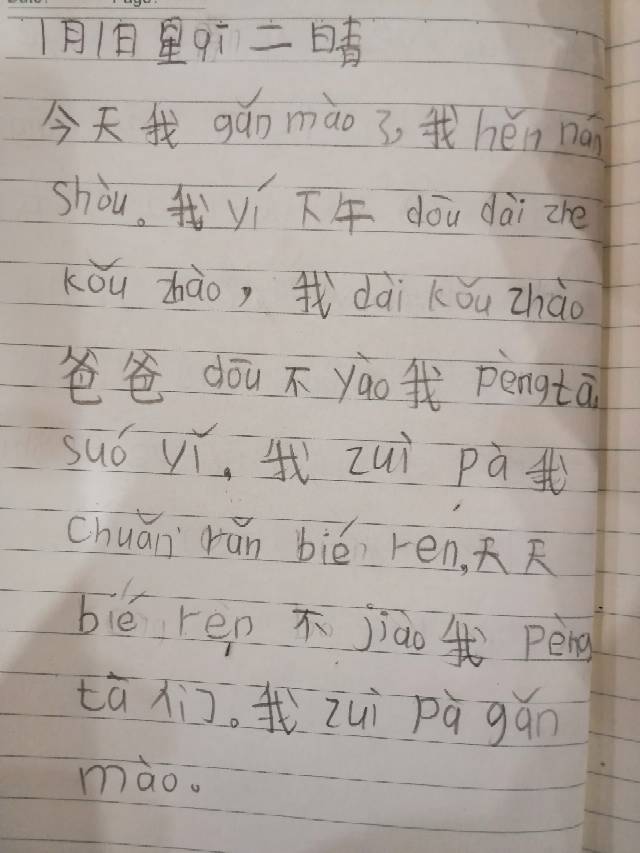 1月1日星qī二日晴
今天我 gǎn mào了,我hěn nán
shòu。我 yí 下午 dōu dài zhe
kǒu zhào，我 dài kǒu zhào
爸爸 dōu 不 yào 我 pèng tā
suó yǐ，我 zuì pà 我
chuǎn rǎn bié rén,天天
bié rén 不 jiào 我 pèng
tā 们。我 zuì pà gǎn
mào。